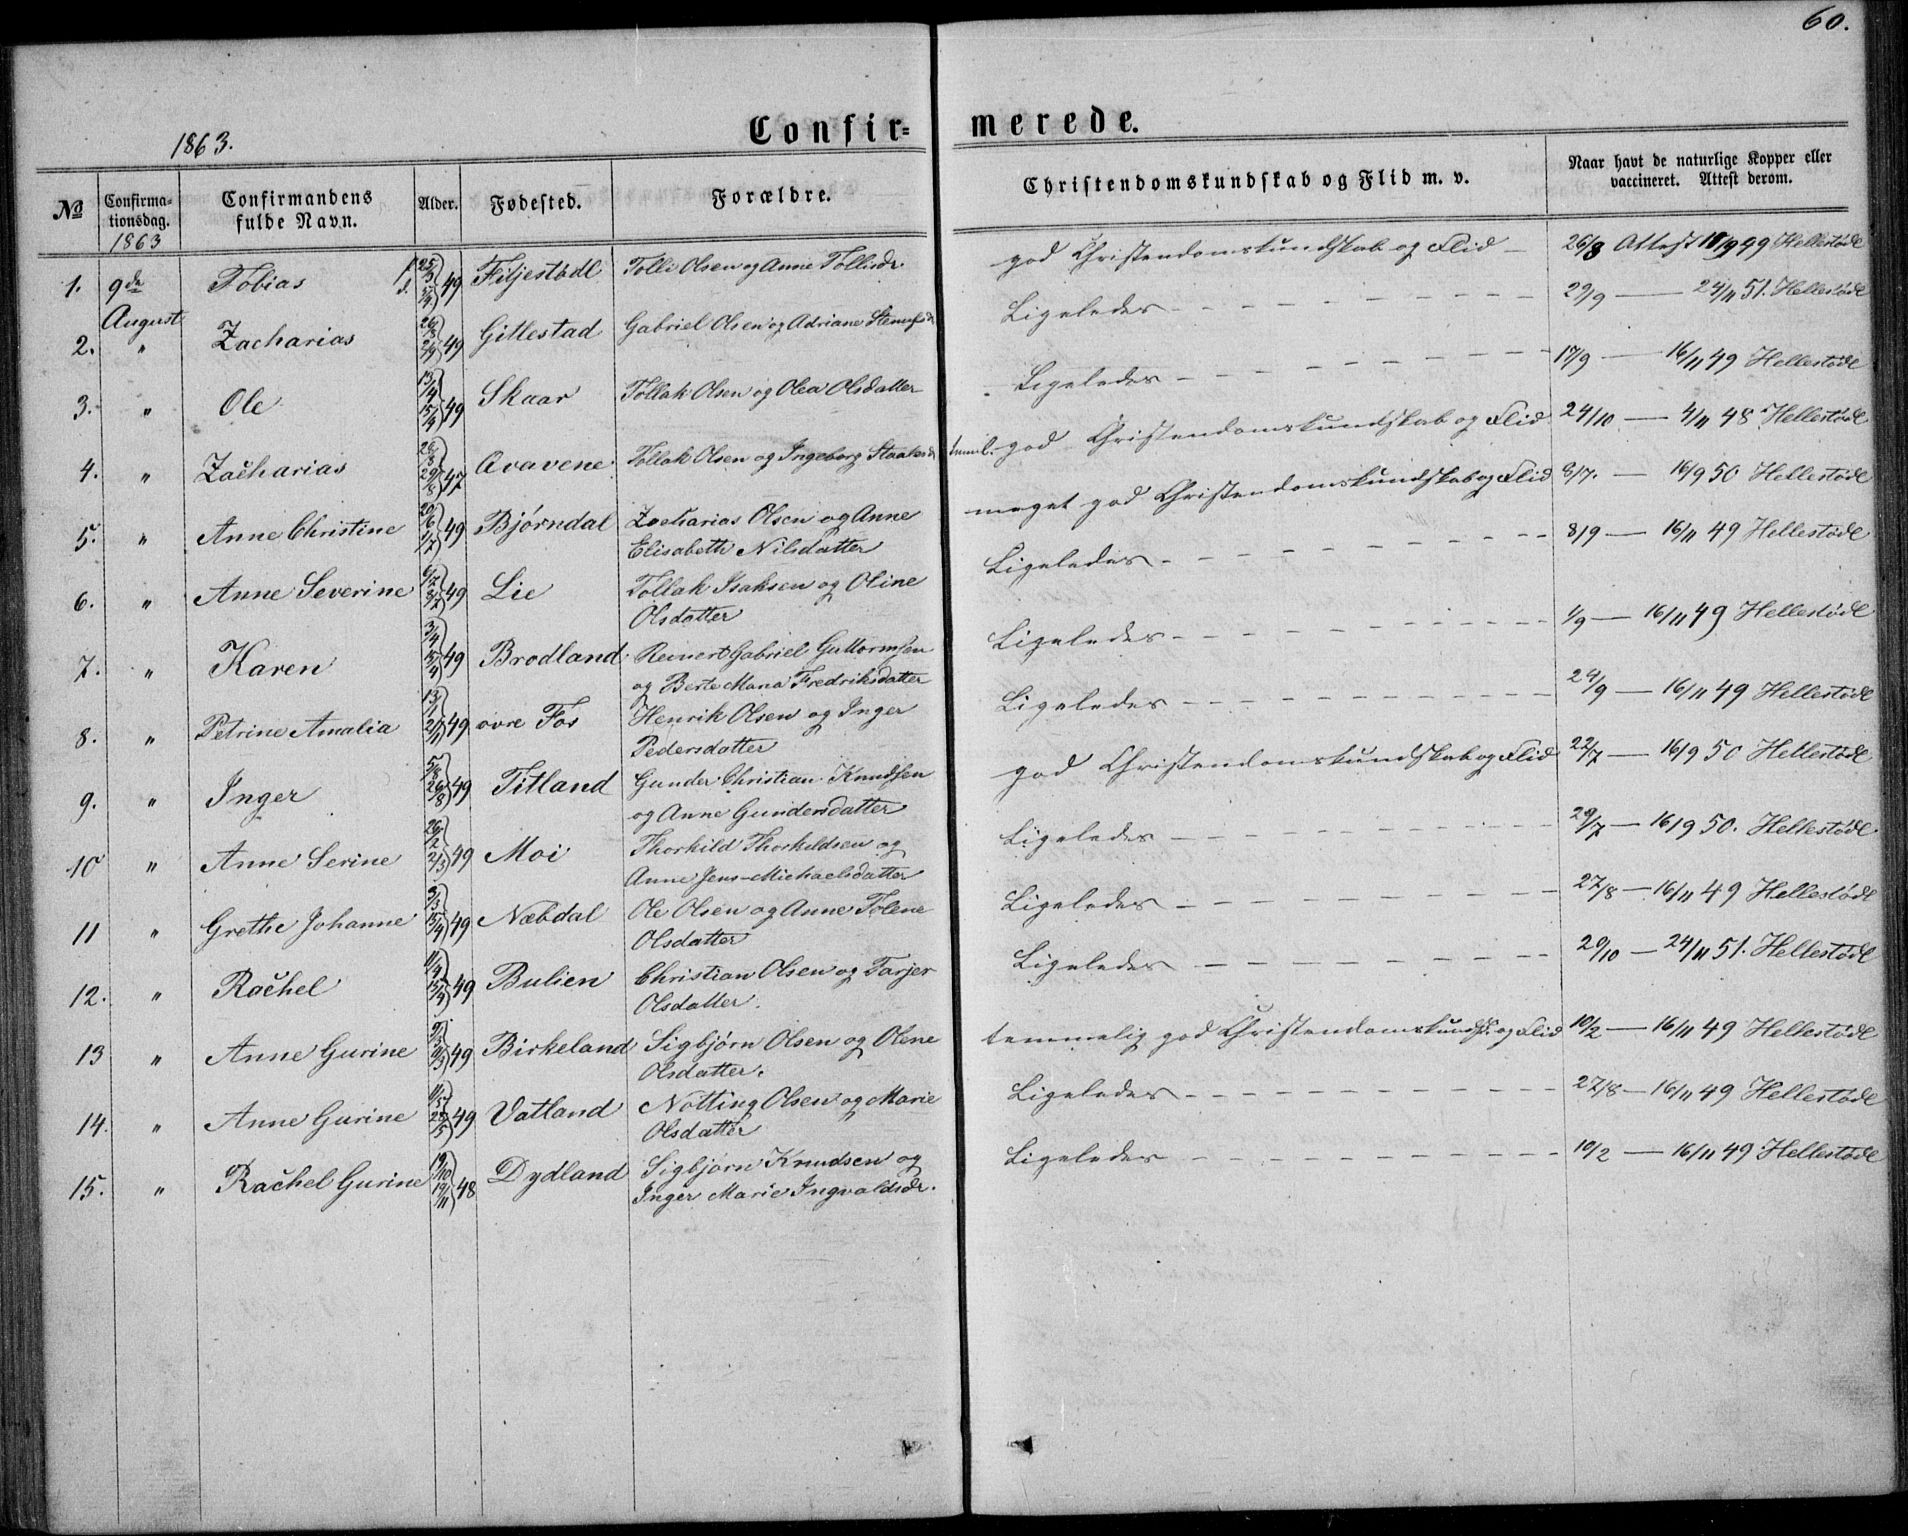 60.
1863. Confirmerede.
№ Confirmationsdag. Confirmandens fulde Navn. Alder. Fødested. Forældre. Christendomskundskab og Flid m. v. Naar havt de naturlige Kopper eller vaccineret. Attest derom.
1863
1. 9de August Tobias f. 25/3 d. 5/4 49 Filjestødl Tolli Olsen og Anne Tollisdr. god Christendomskundskab og Flid 26/8 Attest 49 Hellestødl
2. " Zacharias 26/8 2/9 49 Gillestad Gabriel Olsen og Adriane Ligeledes 29/9 — 24/11 51. Hellestødl
3. " Ole 13/4 15/4 49 Skaar Tollak Olsen og Olea Olsdatter Ligeledes 17/9 — 16/11 49 Hellestødl
4. " Zacharias 26/8 29/8 47 Aavavene Tollak Olsen og Ingeborg temml. god Christendomskundskab og Flid 24/10 — 4/11 48 Hellestødl
5. " Anne Christine 20/6 1/7 49 Bjørndal Zacharias Olsen og Anne Elisabeth Nilsdatter meget god Christendomskundskab og Flid 8/7. — 16/9 50 Hellestødl
6. " Anne Severine 49 Lie Tollak Isaksen og Oline Olsdatter Ligeledes 8/9 — 16/11 49 Hellestødl
7. " Karen 3/4 15/4 49 Brodland Reinert Gabriel Guttormsen og Berte Maria Fredriksdatter Ligeledes 1/9 — 16/11 49 Hellestødl
8. " Petrine Amalia 13/1 21/1 49 øvre Fos Henrik Olsen og Inger Pedersdatter Ligeledes 24/9 — 16/11 49 Hellestødl
9. " Inger 5/8 26/8 49 Titland Gunder Christian Knudsen og Anne Gundersdatter god Christendomskundskab og Flid 22/7 — 16/9 50 Hellestødl
10 " Anne Serine 26/2 2/3 49 Moi Thorkild Thorkildsen og Anne Jens-Michaelsdatter Ligeledes 29/7 — 16/9 50. Hellestødl
11 " Grethe Johanne 49 Næbdal Ole Olsen og Anne Tolene Olsdatter Ligeledes 27/8 — 16/11 49 Hellestødl
12. " Rachel 11/4 15/4 49 Bulien Christian Olsen og Tarjer Olsdatter. Ligeledes 29/10 — 24/11 51. Hellestødl
13 " Anne Gurine 49 Birkeland Sigbjørn Olsen og Olene Olsdatter. temmelig god Christendomskundsk. og Flid 10/2 — 16/11 49 Hellestødl
14. " Anne Gurine 49 Vatland Notting Olsen og Marie Olsdatter Ligeledes 27/8 — 16/11 49 Hellestødl
15. " Rachel Gurine 19/10 19/11 48 Dydland Sigbjørn Knudsen og Inger Marie Ingvaldsdr. Ligeledes 10/2 — 16/11 49 Hellestødl